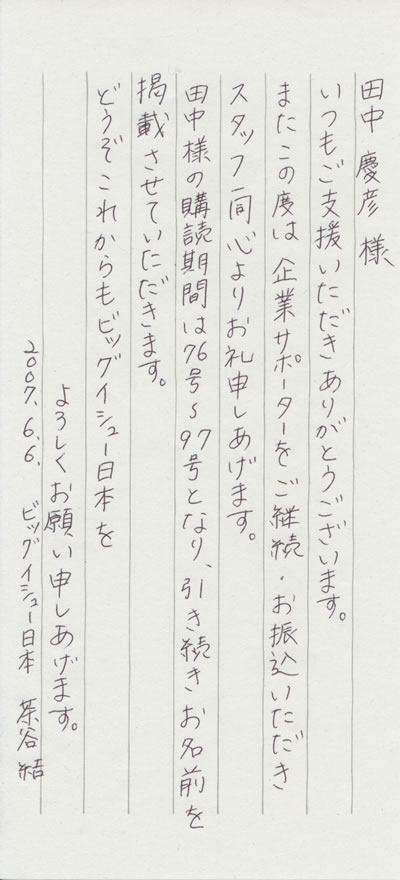 田中 慶彦 様
いつもご支援いただきありがとうございます。
またこの度は企業サポーターをご継続・お振込いただき
スタッフ一同心よりお礼申しあげます。
田中様の購読期間は76号〜97号となり、引き続きお名前を
掲載させていただきます。
どうぞこれからもビッグイシュー日本を
よろしくお願い申しあげます。
2007.6.6. ビッグイシュー日本 茶谷 結